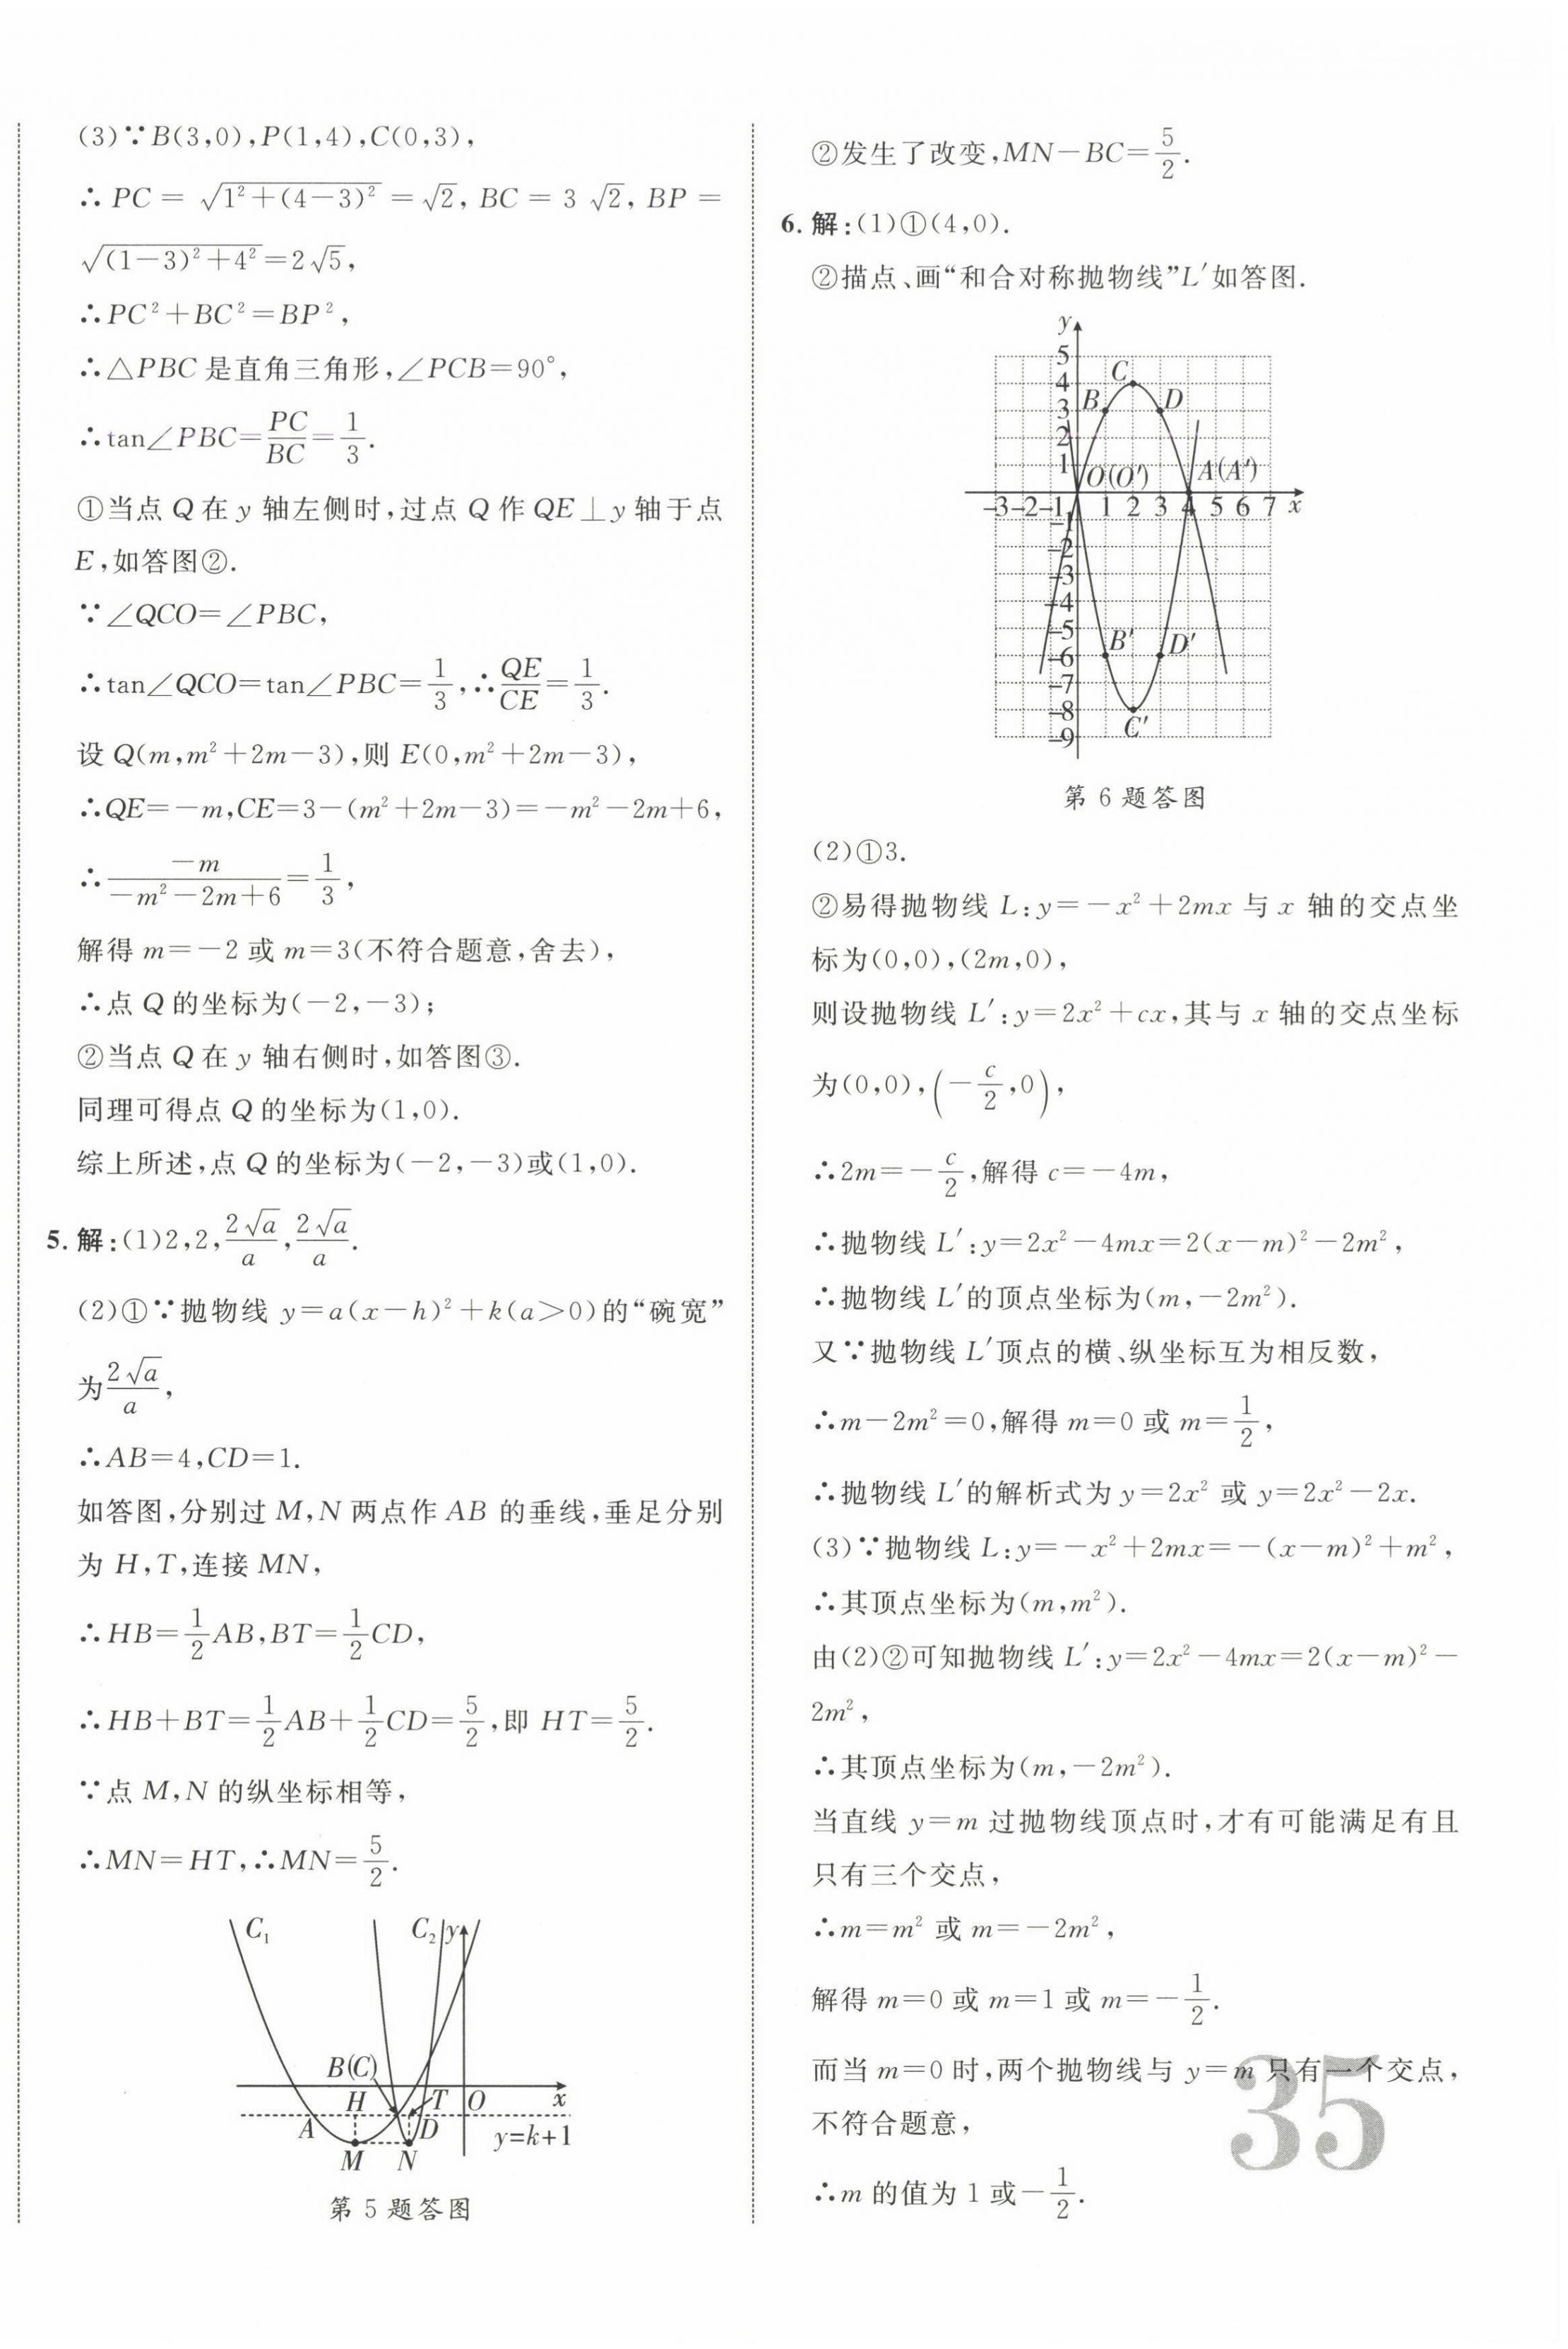 (3)∵B(3,0),P(1,4),C(0,3),
∴PC=√(1²+(4-3)²)=√2,BC=3√2,BP=
√((1-3)²+4²)=2√5,
∴PC²+BC²=BP²,
∴△PBC是直角三角形,∠PCB=90°,
∴tan∠PBC=PC/BC=1/3.
①当点Q在y轴左侧时,过点Q作QE⊥y轴于点
E,如答图②.
∵∠QCO=∠PBC,
∴tan∠QCO=tan∠PBC=1/3,∴QE/CE=1/3.
设Q(m,m²+2m-3),则E(0,m²+2m-3),
∴QE=-m,CE=3-(m²+2m-3)=-m²-2m+6,
∴-m/(-m²-2m+6)=1/3,
解得m=-2或m=3(不符合题意,舍去),
∴点Q的坐标为(-2,-3);
②当点Q在y轴右侧时,如答图③.
同理可得点Q的坐标为(1,0).
综上所述,点Q的坐标为(-2,-3)或(1,0).
5.解:(1)2,2,2√a/a,2√a/a.
(2)①∵抛物线y=a(x-h)²+k(a>0)的“碗宽”
为2√a/a,
∴AB=4,CD=1.
如答图,分别过M,N两点作AB的垂线,垂足分别
为H,T,连接MN,
∴HB=1/2AB,BT=1/2CD,
∴HB+BT=1/2AB+1/2CD=5/2,即HT=5/2.
∵点M,N的纵坐标相等,
∴MN=HT,∴MN=5/2.
C₁ C₂ y
B(C)
H T O x
A D y=k+1
M N
第5题答图
②发生了改变,MN-BC=5/2.
6.解:(1)①(4,0).
②描点、画“和合对称抛物线”L′如答图.
y
5
4 C
3 B D
2
1 O(O′) A(A′)
-3-2-1 1 2 3 4 5 6 7 x
-1
-2
-3
-4
-5
-6 B′ D′
-7
-8
C′
-9
第6题答图
(2)①3.
②易得抛物线L:y=-x²+2mx与x轴的交点坐
标为(0,0),(2m,0),
则设抛物线L′:y=2x²+cx,其与x轴的交点坐标
为(0,0),(-c/2,0),
∴2m=-c/2,解得c=-4m,
∴抛物线L′:y=2x²-4mx=2(x-m)²-2m²,
∴抛物线L′的顶点坐标为(m,-2m²).
又∵抛物线L′顶点的横、纵坐标互为相反数,
∴m-2m²=0,解得m=0或m=1/2,
∴抛物线L′的解析式为y=2x²或y=2x²-2x.
(3)∵抛物线L:y=-x²+2mx=-(x-m)²+m²,
∴其顶点坐标为(m,m²).
由(2)②可知抛物线L′:y=2x²-4mx=2(x-m)²-
2m²,
∴其顶点坐标为(m,-2m²).
当直线y=m过抛物线顶点时,才有可能满足有且
只有三个交点,
∴m=m²或m=-2m²,
解得m=0或m=1或m=-1/2.
而当m=0时,两个抛物线与y=m只有一个交点,
不符合题意,
∴m的值为1或-1/2.
35